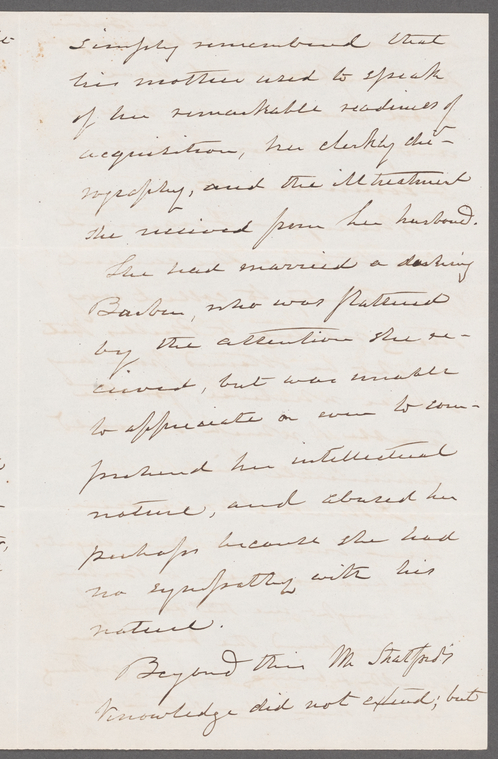 simply remembered that
his mother used to speak
of her remarkable readiness of
acquisition, her clerkly chi-
rography, and the illtreatment
she received from her husband.
She had married a dashing
Barber, who was flattered
by the attention she re-
ceived, but was unable
to appreciate or even to com-
prehend her intellectual
nature, and abused her
perhaps because she had
no sympathy with his
nature.
Beyond this Mr Shatford's
knowledge did not extend; but